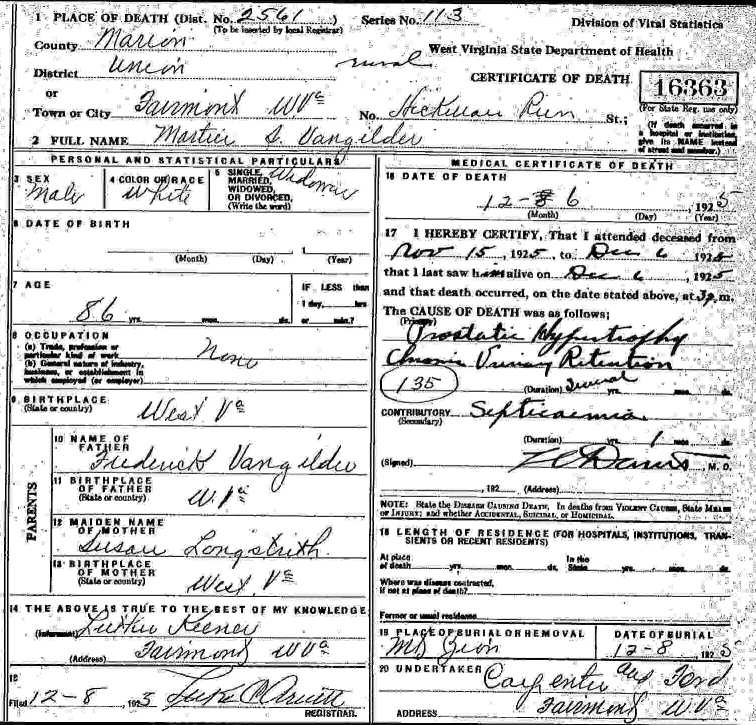 1 PLACE OF DEATH (Dist. No. 2561) Series No. 113 Division of Vital Statistics
(To be inserted by local Registrar)
County Marion West Virginia State Department of Health
District Union rural CERTIFICATE OF DEATH
or 16363
Town or City Fairmont WVa No. Hickman Run St.; (For State Reg. use only)
(If death occurred in a hospital or institution, give its NAME instead of street and number.)
2 FULL NAME Vangilder
PERSONAL AND STATISTICAL PARTICULARS
3 SEX Male
4 COLOR OR RACE White
5 SINGLE, MARRIED, WIDOWED, OR DIVORCED, (Write the word) Widower
6 DATE OF BIRTH
(Month) (Day) (Year)
7 AGE
86 yrs. mos. ds.
IF LESS than
1 day, hrs
or min.?
8 OCCUPATION
(a) Trade, profession or
particular kind of work None
(b) General nature of industry,
business, or establishment in
which employed (or employer)
9 BIRTHPLACE
(State or country) West Va
PARENTS
10 NAME OF
FATHER Frederick Vangilder
11 BIRTHPLACE
OF FATHER
(State or country) W. Va
12 MAIDEN NAME
OF MOTHER Susan
13 BIRTHPLACE
OF MOTHER
(State or country) West. Va
14 THE ABOVE IS TRUE TO THE BEST OF MY KNOWLEDGE
(Informant) Keener
(Address) Fairmont W Va
15
Filed 12-8 192
REGISTRAR.
MEDICAL CERTIFICATE OF DEATH
16 DATE OF DEATH
12-8 6 1925
(Month) (Day) (Year)
17 I HEREBY CERTIFY, That I attended deceased from
Nov 15, 1925, to Dec 6 1925
that I last saw him alive on Dec 6 1925
and that death occurred, on the date stated above, at 3 p. m.
The CAUSE OF DEATH was as follows;
(Primary) Prostatic Hypertrophy
Chronic Urinary Retention
135 (Duration) Several yrs. mos. ds.
CONTRIBUTORY Septicaemia
(Secondary)
(Duration) yrs. 1 mos. ds.
(Signed) M. D.
, 192 (Address)
NOTE: State the DISEASE CAUSING DEATH. In deaths from VIOLENT CAUSES, State MEANS
OF INJURY; and whether ACCIDENTAL, SUICIDAL, or HOMICIDAL.
18 LENGTH OF RESIDENCE (FOR HOSPITALS, INSTITUTIONS, TRAN-
SIENTS OR RECENT RESIDENTS)
At place In the
of death yrs. mos. ds. State yrs. mos. ds.
Where was disease contracted,
if not at place of death?
Former or usual residence
19 PLACE OF BURIAL OR REMOVAL DATE OF BURIAL
Mt Zion 12-8, 1925
20 UNDERTAKER Carpenter and Ford
ADDRESS Fairmont W Va